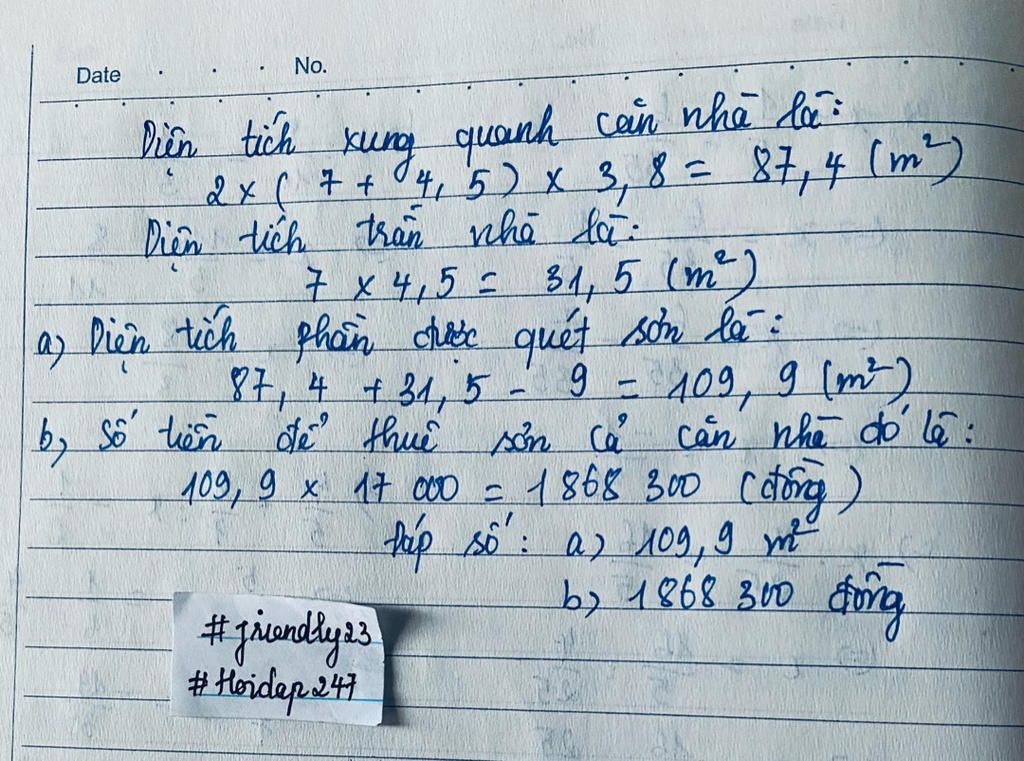 Date No.
Diện tích xung quanh căn nhà là:
2 x ( 7 + 4, 5 ) x 3, 8 = 87, 4 ( m² )
Diện tích trần nhà là:
7 x 4, 5 = 31, 5 (m²)
a) Diện tích phần được quét sơn là:
87, 4 + 31, 5 - 9 = 109, 9 (m²)
b) Số tiền để thuê sơn cả căn nhà đó là:
109, 9 x 17 000 = 1 868 300 (đồng)
Đáp số: a) 109, 9 m²
b) 1 868 300 đồng
# friendly23
# Hoidap247